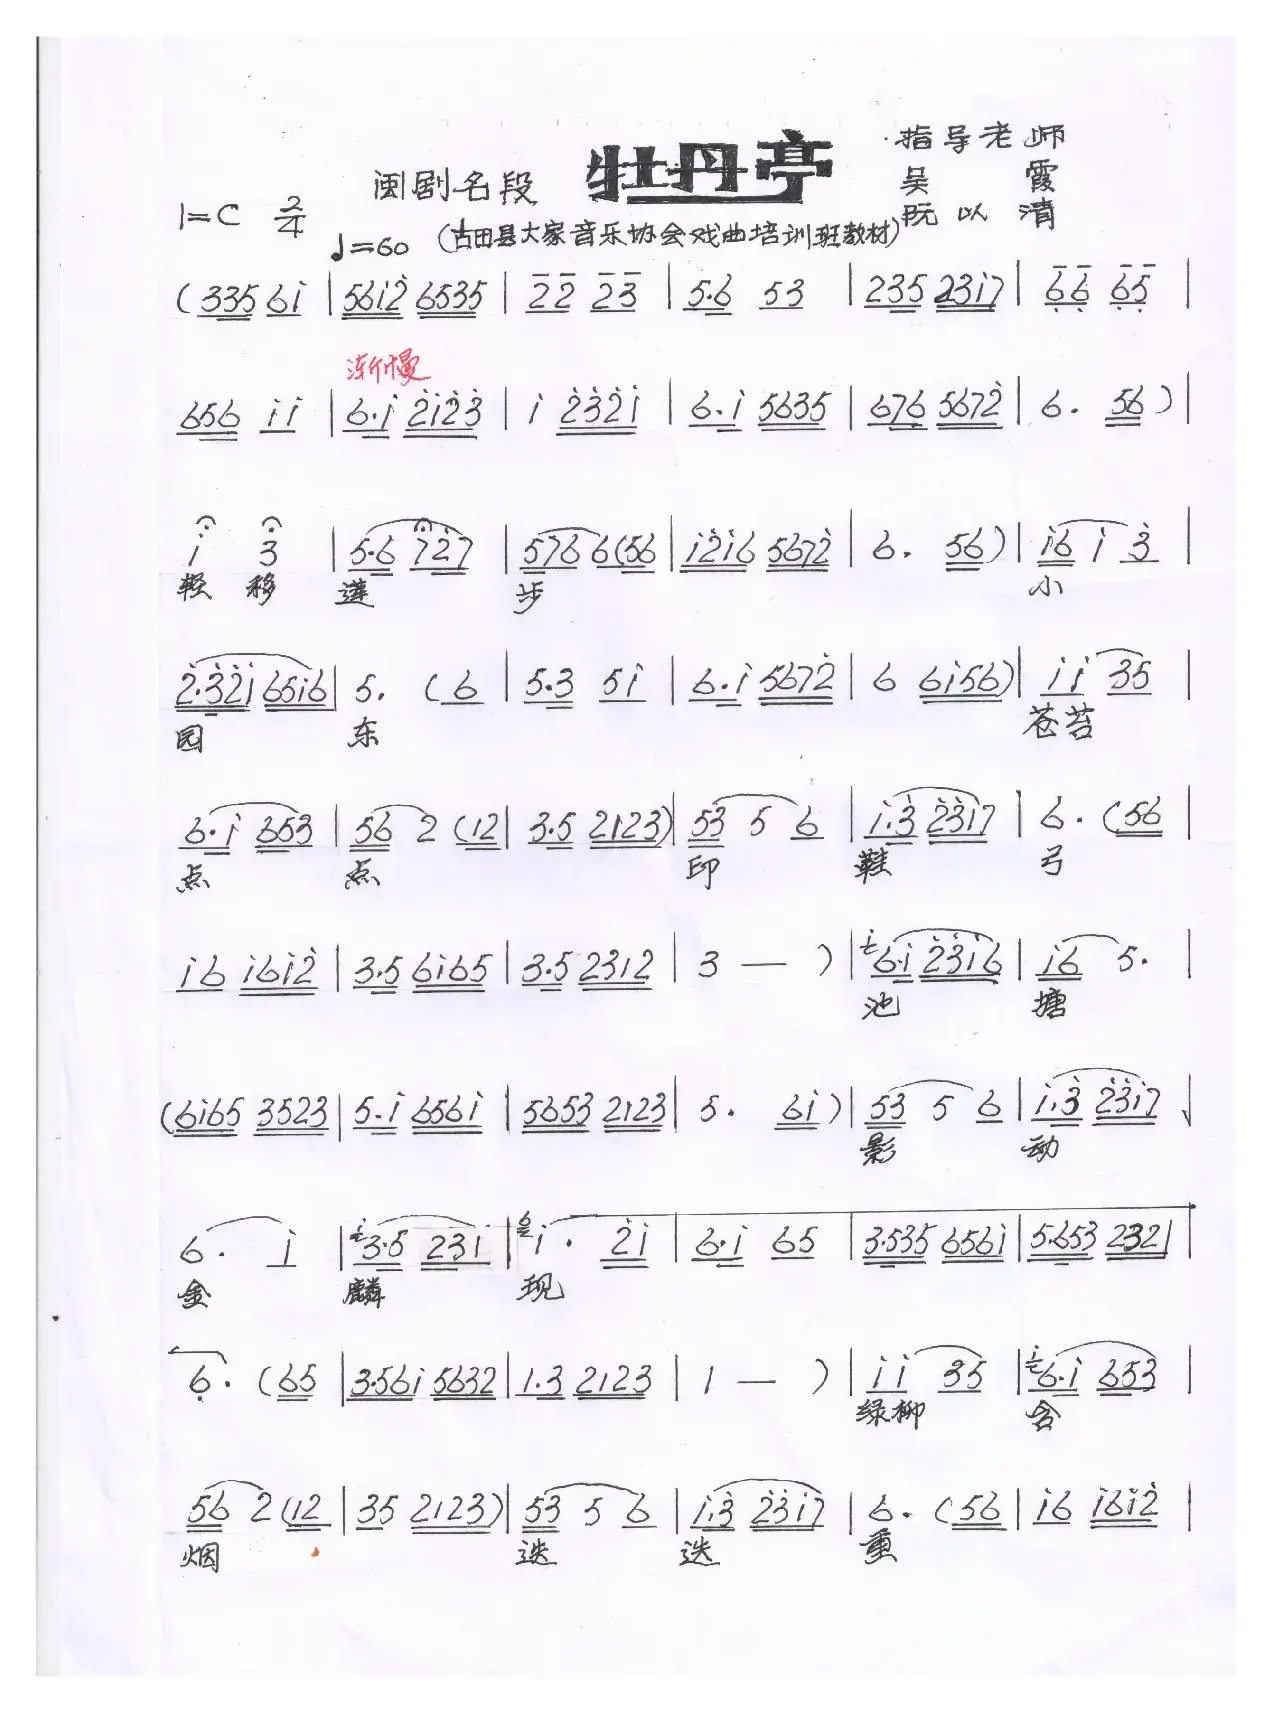 闽剧名段 牡丹亭 指导老师
吴霞
阮以清
1=C 2/4 ♩=60 (古田县大家音乐协会戏曲培训班教材)
(335 6i | 56i2̇ 6535 | 22 23 | 5·6 53 | 235 23i7 | 6̣6̣ 6̣5̣ |
渐慢
656 ii | 6·i 2̇i2̇3̇ | i 2̇3̇2̇i | 6·i 5635 | 676 5672̇ | 6· 56) |
i 3 | 5·6 72̇7 | 576 6(56 | i2̇i6 5672̇ | 6· 56) | i6 i 3̇ |
轻 移 莲 步 小
2̇·3̇2̇i 65i6 | 5· (6 | 5·3 5i | 6·i 5672̇ | 6 6i56) | ii 35 |
园 东 苍苔
6·i 653 | 56 2 (12 | 3·5 2123) | 53 5 6 | i·3̇ 2̇3̇i7 | 6· (56 |
点 点 印 鞋 弓
i6 i6i2̇ | 3·5 6i65 | 3·5 2312 | 3 — ) | i6·i 2̇3̇i6 | i6 5· |
池 塘
(6i65 3523 | 5·i 656i | 5653 2123 | 5· 6i) | 53 5 6 | i·3̇ 2̇3̇i7 |
影 动
6· i | i3·5 231 | 6i· 2̇i | 6·i 65 | 3·535 656i | 5·653 2321 |
金 麟 现
6̣· (65 | 3·56i 5632 | 1·3 2123 | 1 — ) | ii 35 | i6·i 653 |
绿柳 含
56 2 (12 | 35 2123) | 53 5 6 | i·3̇ 2̇3̇i7 | 6· (56 | i6 i6i2̇ |
烟 迭 迭 重